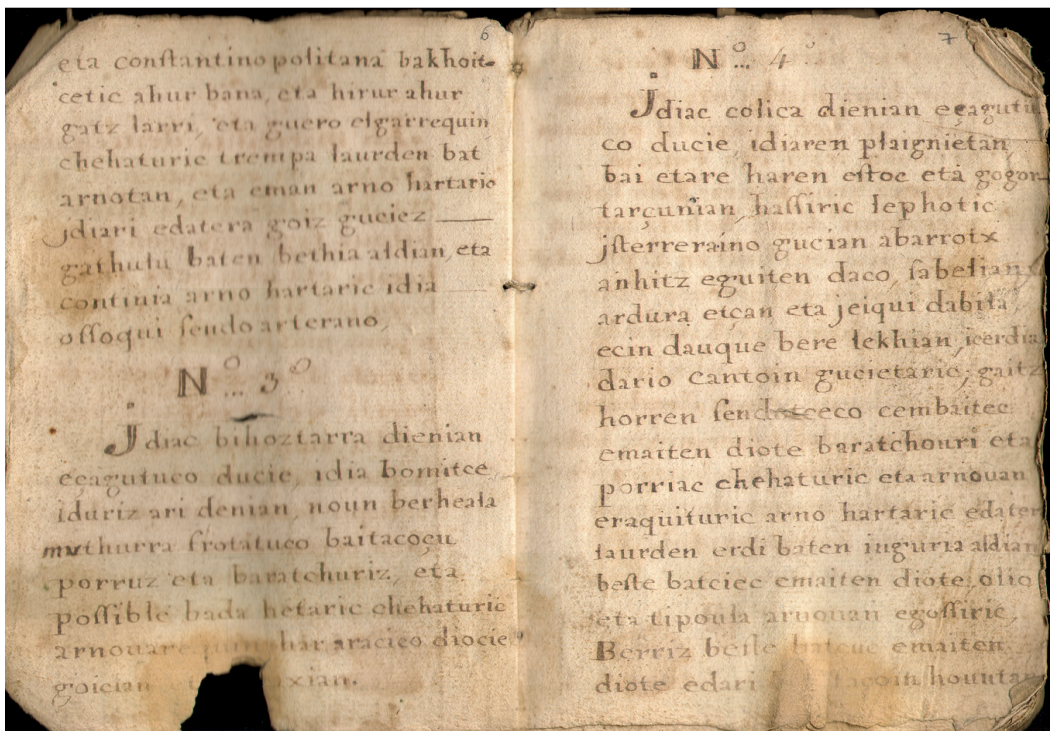 6
eta conſtantinopolitana bakhoit-
cetic ahur bana, eta hirur ahur
gatz larri, eta guero elgarrequin
chehaturic trempa laurden bat
arnotan, eta eman arno hartario
jdiari edatera goiz guciez
gathulu baten bethia aldian, eta
continia arno hartaric idia
oſſoqui ſendo arterano,
N.º.. 3º
Jdiac bihoztarra dienian
eçagutuco ducie, idia bomitce
iduriz ari denian, noun berheala
muthurra frotatuco baitacoçu
porruz eta baratchuriz, eta
poſſible bada hetaric chehaturic
arnouare har aracico diocie
goician xian.
7
N.º.. 4º
Jdiac colica dienian eçagutu
co ducie, idiaren plaignietan
bai etare haren eſtoc eta gogor
tarçunian, haſſiric lephotic
jſterreraino gucian abarrotx
anhitz eguiten daco, ſabelian
ardura etçan eta jeiqui dabila,
ecin dauque bere lekhian, icerdia
dario cantoin gucietaric, gaitz
horren ſendatceco cembaitec
emaiten diote baratchouri eta
porriac chehaturic eta arnouan
eraquituric arno hartaric edater
laurden erdi baten inguria aldian
beſte batciec emaiten diote, olio
eta tipoula arnouan egoſſiric,
Berriz beſte batcue emaiten
diote edari hountan